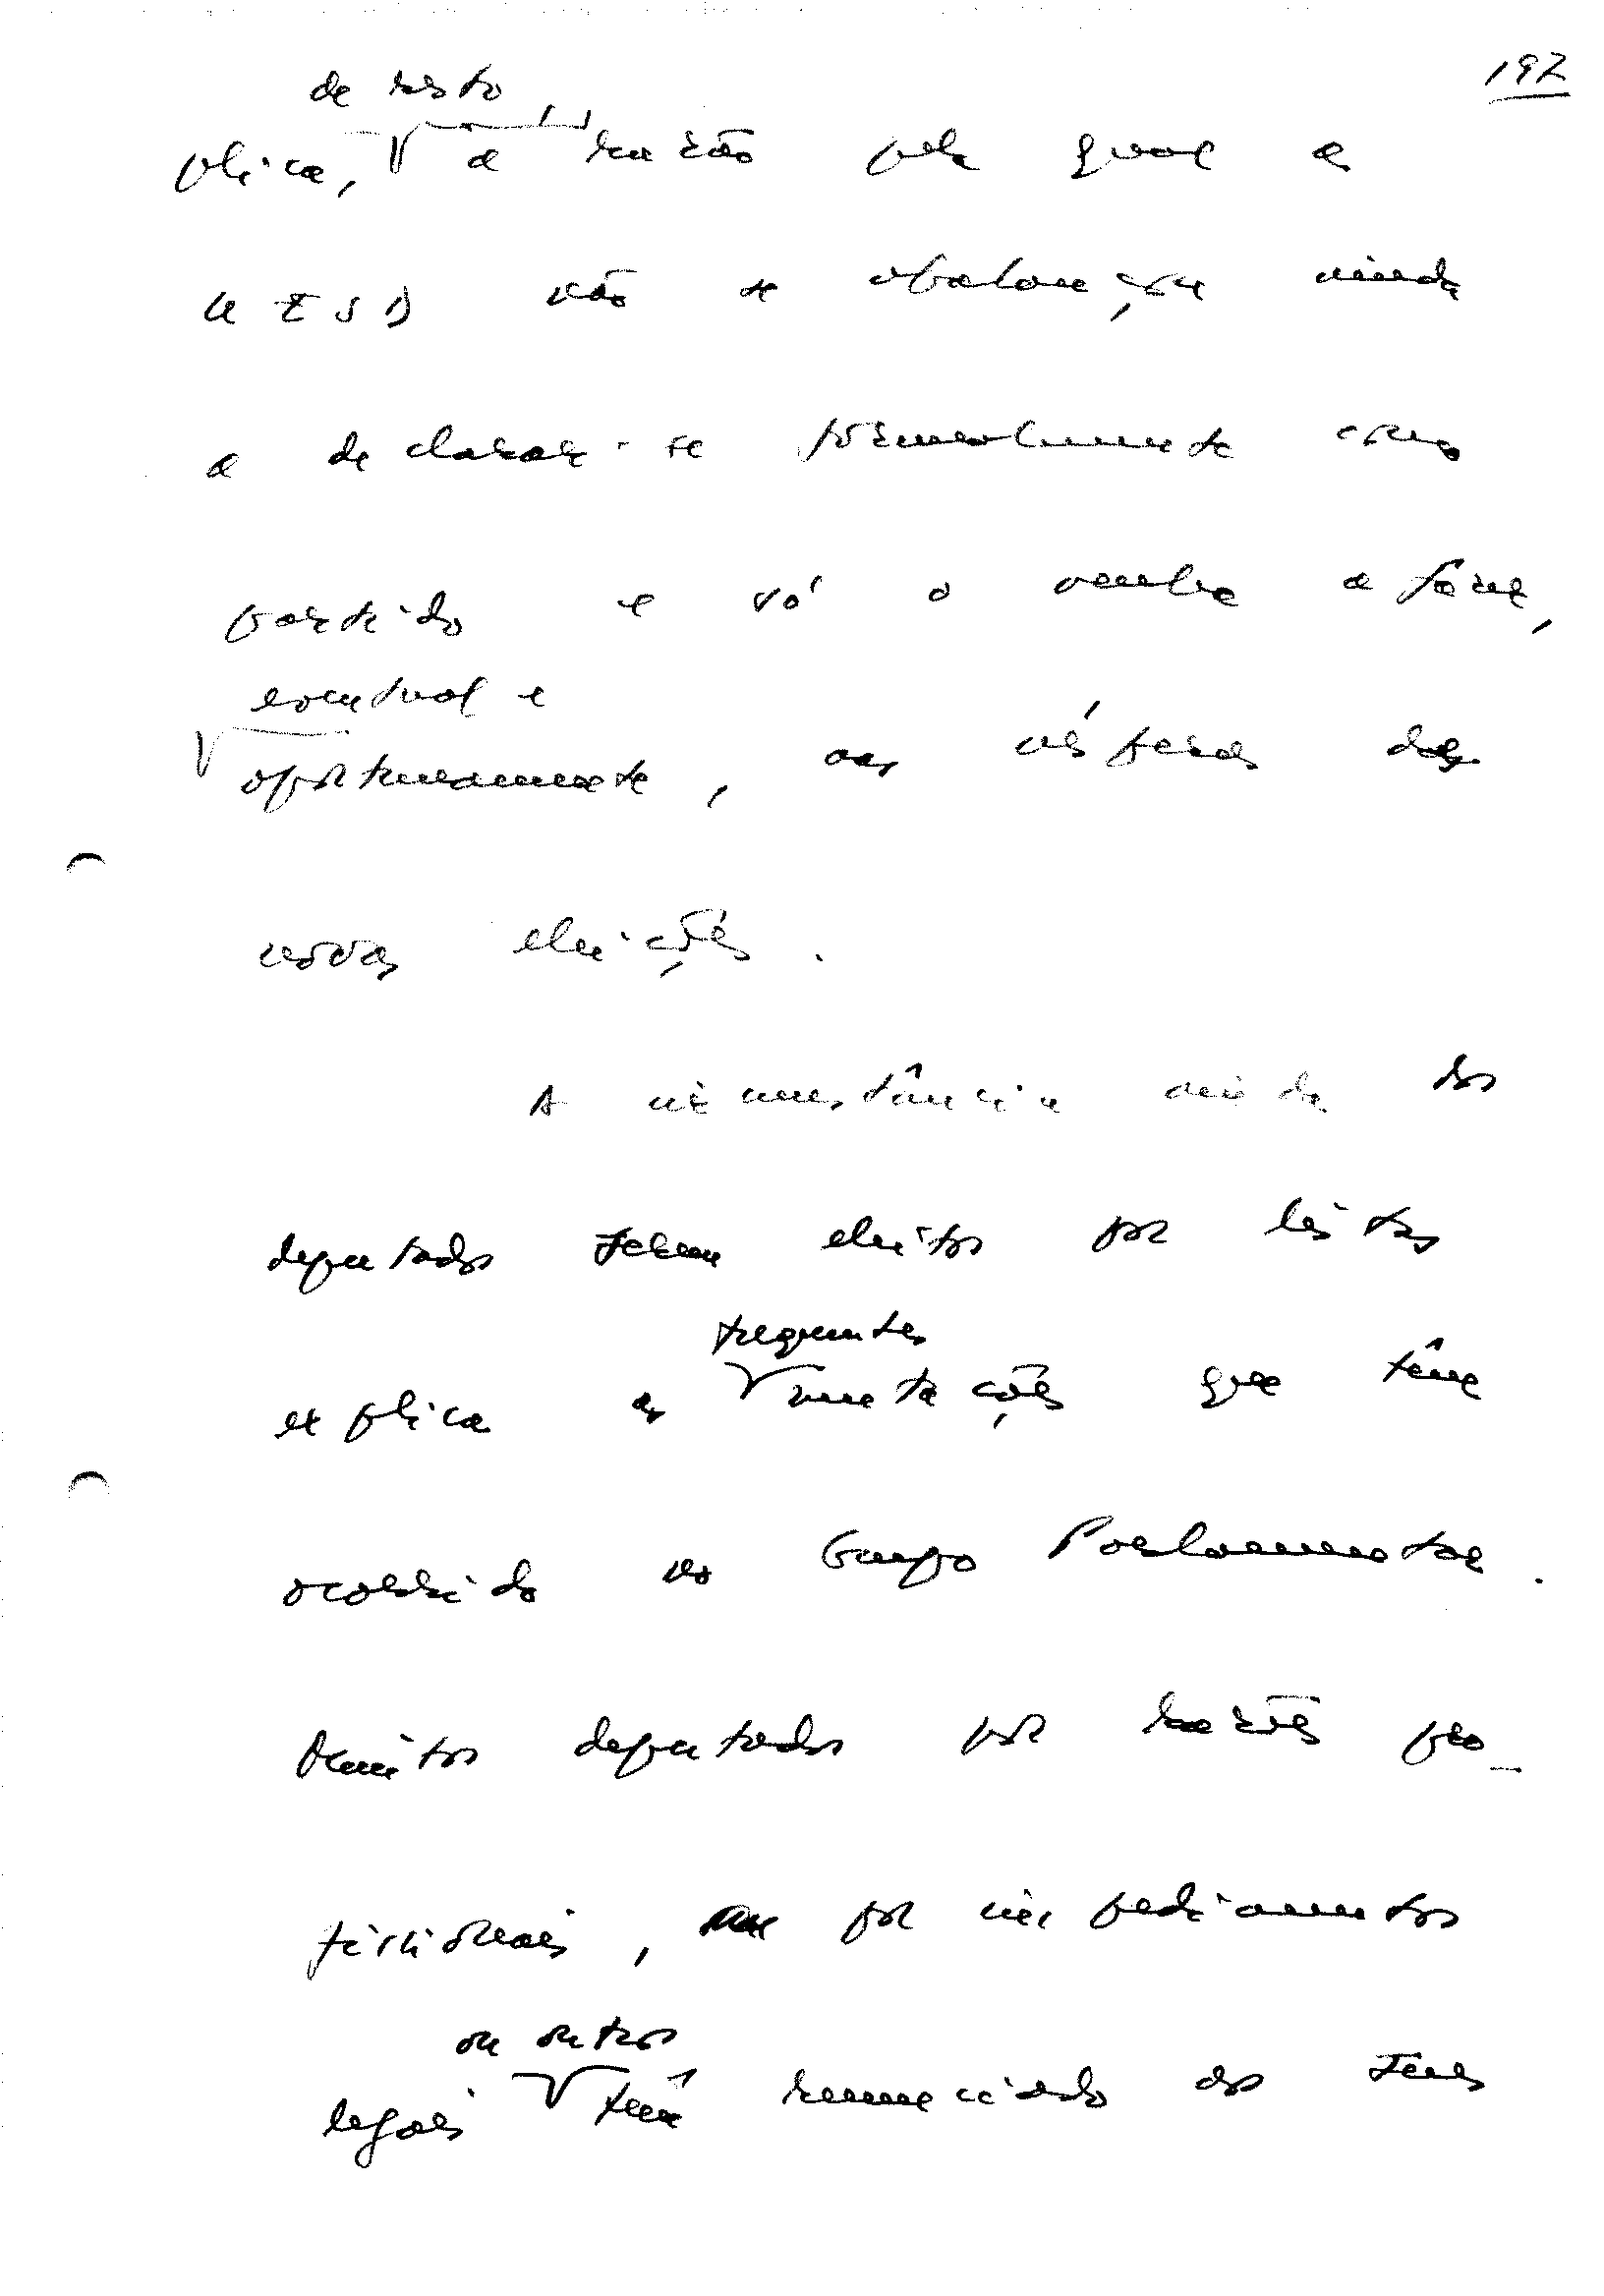 192
de resto
plica, a razão pela qual a
UEDS não se abalançou ainda
a declarar-se formalmente como
partido e só o venha a fazer,
eventual e
oportunamente, nas vésperas das
novas eleições.
A circunstância ainda dos
deputados serem eleitos por listas
frequentes
explica as mutações que têm
ocorrido no Grupo Parlamentar.
Muitos deputados por razões pro-
fissionais, ou por impedimentos
ou outros
legais têm renunciado aos seus